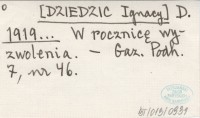 [DZIEDZIC Ignacy] D.
1919... W rocznicę wy-
zwolenia. – Gaz. Podh.
7, nr 46.